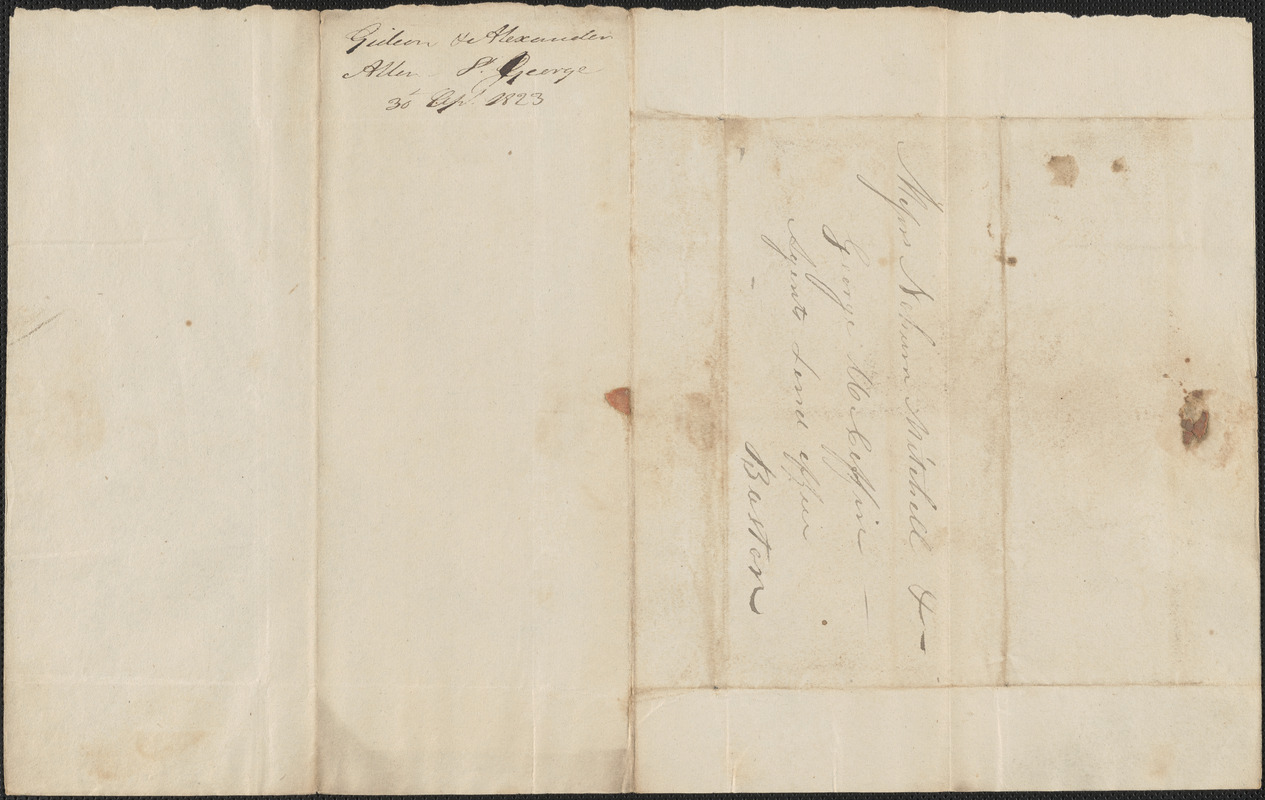 Gideon & Alexander
Allen St. George
30 Apl. 1823
Messrs Nahum Mitchell &
George W Coffin —
Agents Land office
Boston